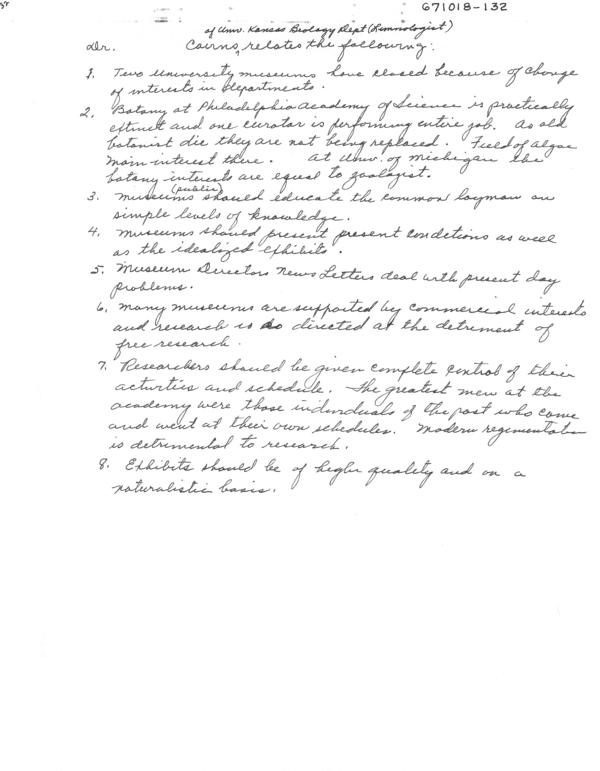 671018-132
of Univ. Kansas Biology Dept (Limnologist)
Dr. Cairns, relates the following:
1. Two university museums have closed because of change
of interests in departments.
2. Botany at Philadelphia Academy of Science is practically
extinct and one curator is performing entire job. As old
botanist die they are not being replaced. Field of algae
main interest there. At Univ. of Michigan the
botany interests are equal to zoologist.
(public)
3. Museums should educate the common layman on
simple levels of knowledge.
4. Museums should present present conditions as well
as the idealized exhibits.
5. Museum Directors News Letters deal with present day
problems.
6. Many museums are supported by commercial interests
and research is so directed at the detriment of
free research.
7. Researchers should be given complete control of their
activities and schedule. The greatest men at the
academy were those individuals of the past who came
and went at their own schedules. Modern regimentation
is detrimental to research.
8. Exhibits should be of higher quality and on a
naturalistic basis.